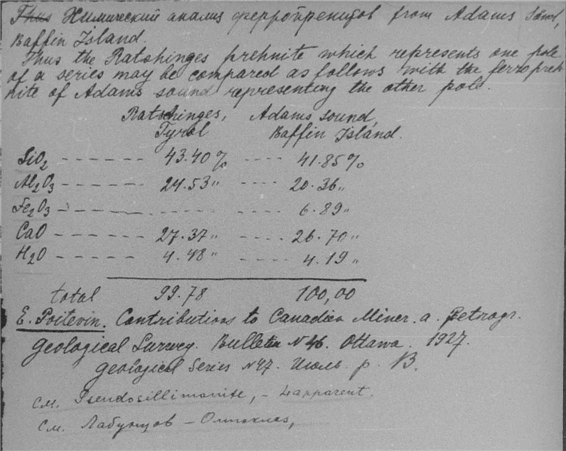 Thus Химический анализ ферропренитов from Adams Sound,
Baffin Island.
Thus the Ratshinges prehnite which represents one pole
of a series may be compared as follows with the ferropreh
nite of Adams sound representing the other pole.
Ratschinges, Adams sound,
Tyrol Baffin Island.
SiO2 ------- 43.40% ---- 41.85%
Al2O3 ------- 24.53" ---- 20.36"
Fe2O3 -- ........ ---- 6.89"
CaO ------- 27.37" ---- 26.70"
H2O ------- 4.48" ---- 4.19"
total 99.78 100,00
E. Poitevin. Contributions to Canadian Miner. a. Petrogr.
Geological Survey. Bulletin N46. Ottawa. 1927.
Geological Series N47. Июль. p. B.
см. Pseudosillimanite, -
см. Лабунцов -